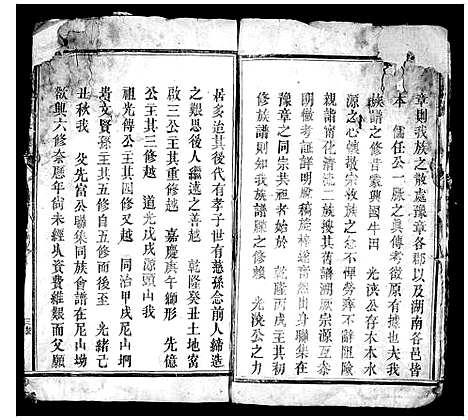 章則我族之散處豫章各郡以及湖南各邑皆
本 儒任公一脈之真傳考徵原有據也夫我
族譜之修昔蒙興國牛田 光浹公存木本水
源之心懷墩宗敬族之念不憚勞瘁不辭阻險
親詣湖南清湘二族搜其舊譜溯厥宗源互泰
明徹考証詳明厥稿族棹歷幽出身聯集在
豫章之同宗共祖者始於 乾隆丙戌主其初
修族譜則知我族譜牒之修賴 光浹公之力
居多迨其後代有孝子世有慈孫念前人締造
之艱思後人繼述之善越 乾隆癸丑土地窩
啟三公主其重修越 嘉慶庚午獅形 先億
公主其三修越 道光戊戌源頭山我
祖光傳公主其四修又越 同治甲戌尼山坰
遺文賢公主其五修自五修而後至 光緒己
丑秋我 父先富公聯集同族會譜在尼山坳
欲興六修奈歷年尚未經久資費維艱而父願